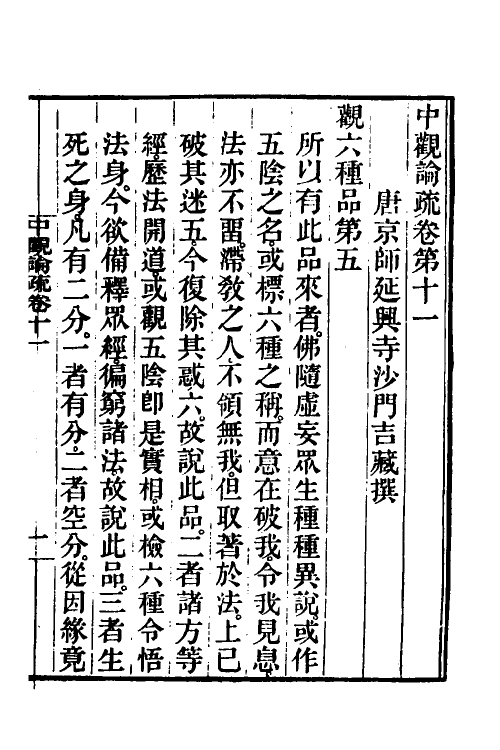 中觀論疏卷第十一
唐京師延興寺沙門吉藏撰
觀六種品第五
所以有此品來者。佛隨虛妄眾生種種異說。或作
五陰之名。或標六種之稱。而意在破我。令我見息。
法亦不習。滯敎之人不領無我。但取著於法。上已
破其迷五。今復除其惑六。故說此品。二者諸方等
經。歷法開道。或觀五陰卽是實相。或檢六種令悟
法身。今欲備釋眾經。徧窮諸法。故說此品。三者生
死之身。凡有二分。一者有分。二者空分。從因緣竟
中觀論疏卷十一
一